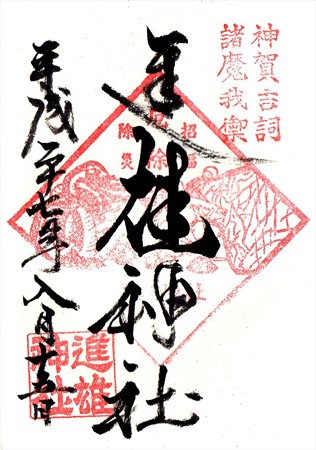 神賀吉詞
諸魔我禦
招福
厄除
除災
進雄神社
平成二十七年八月十五日
進雄
神社